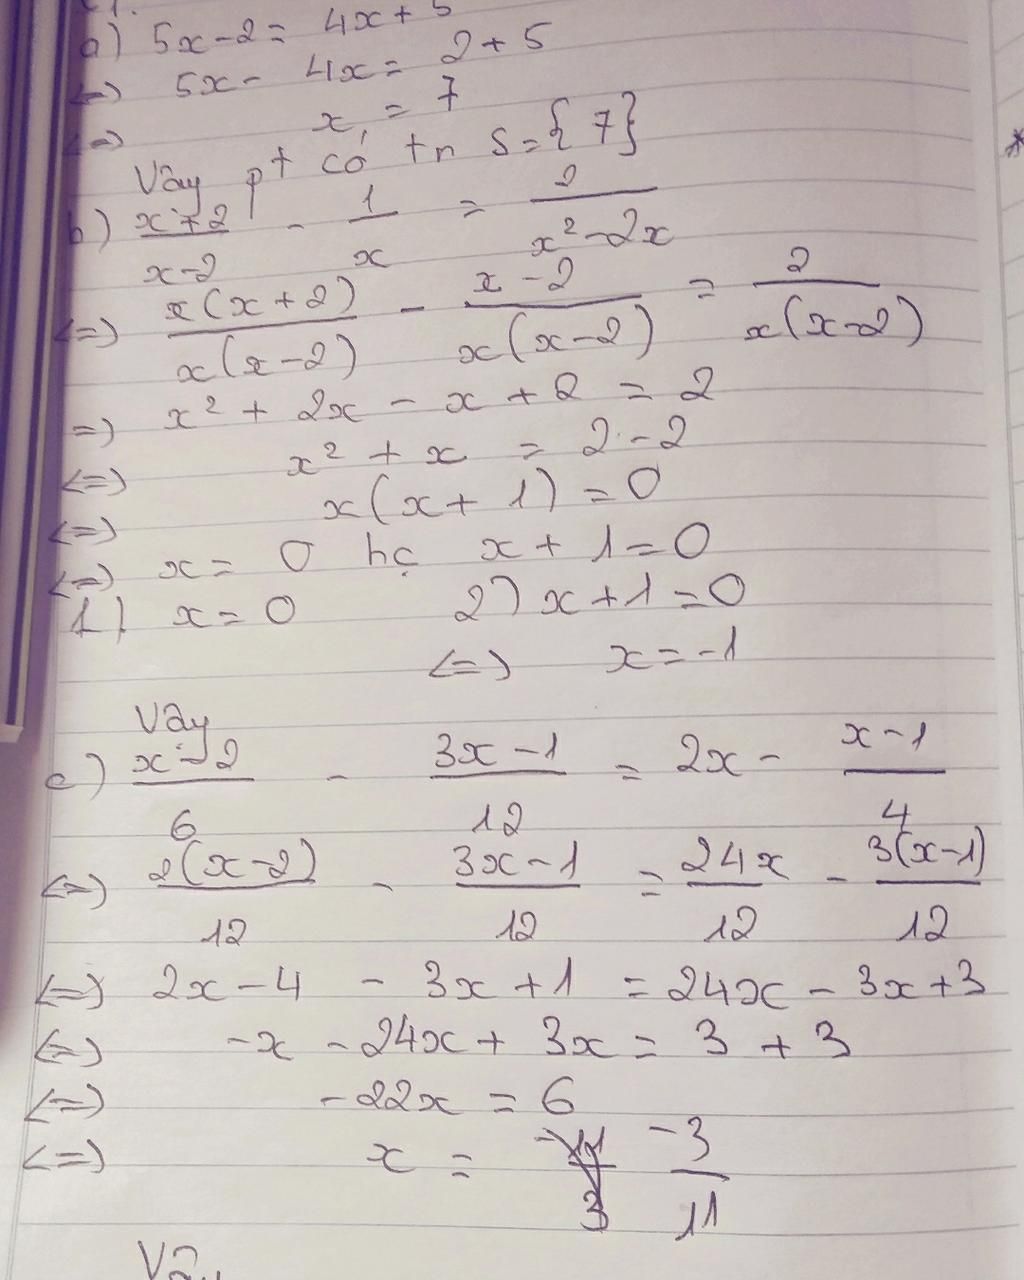 a) 5x-2 = 4x+5
<=> 5x - 4x = 2 + 5
<=> x = 7
Vậy pt có tn S = {7}
b) \frac{x+2}{x-2} - \frac{1}{x} = \frac{2}{x^2-2x}
<=> \frac{x(x+2)}{x(x-2)} - \frac{x-2}{x(x-2)} = \frac{2}{x(x-2)}
=> x² + 2x - x + 2 = 2
<=> x² + x = 2 - 2
<=> x(x+1) = 0
<=> x = 0 hc x + 1 = 0
1) x = 0 2) x + 1 = 0
<=> x = -1
Vậy
c) \frac{x-2}{6} - \frac{3x-1}{12} = 2x - \frac{x-1}{4}
<=> \frac{2(x-2)}{12} - \frac{3x-1}{12} = \frac{24x}{12} - \frac{3(x-1)}{12}
<=> 2x-4 - 3x+1 = 24x - 3x+3
<=> -x - 24x + 3x = 3 + 3
<=> -22x = 6
<=> x = \frac{-3}{11}
Vậy